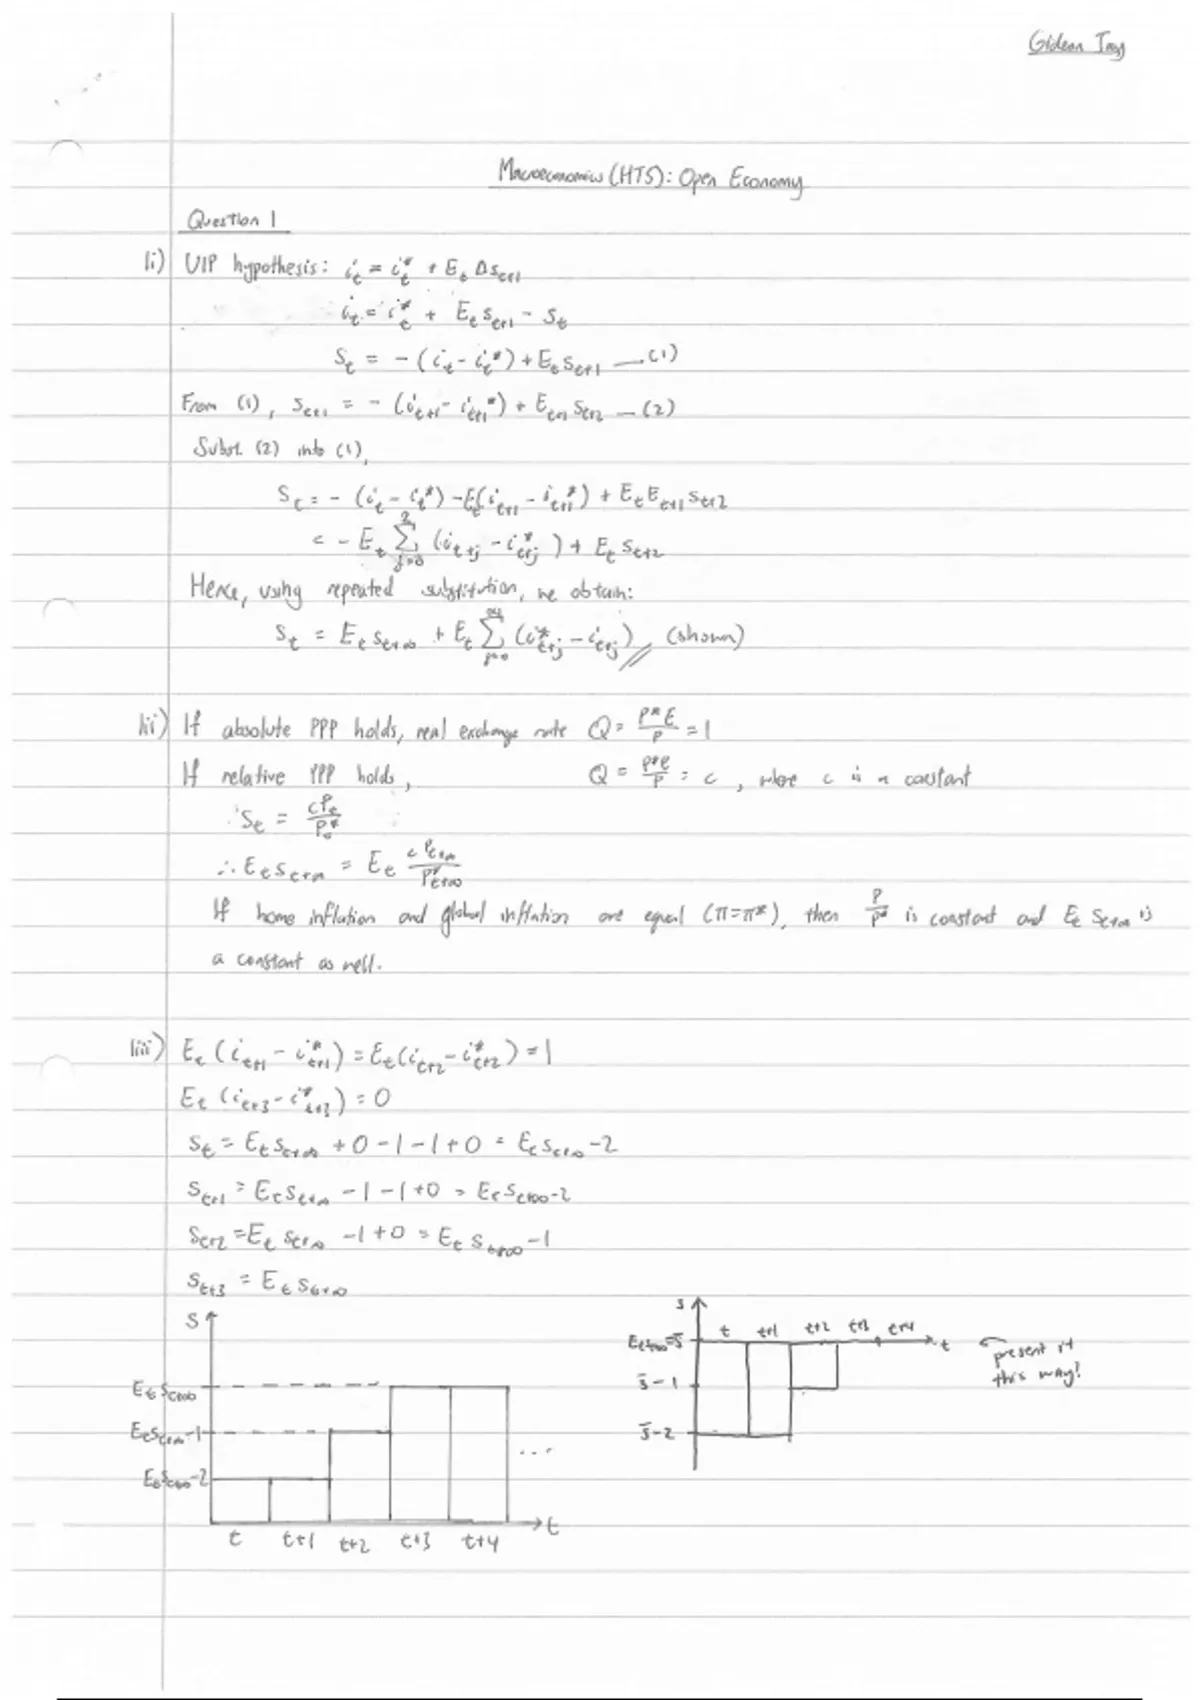 Gideon Tay
Macroeconomics (HTS): Open Economy
Question 1
1i) UIP hypothesis: i_t = i_t^* + E_t Δs_{t+1}
i_t = i_t^* + E_t s_{t+1} - s_t
s_t = - (i_t - i_t^*) + E_t s_{t+1} — (1)
From (1), s_{t+1} = - (i_{t+1} - i_{t+1}^*) + E_{t+1} s_{t+2} — (2)
Subst. (2) into (1),
s_t = - (i_t - i_t^*) - E_t(i_{t+1} - i_{t+1}^*) + E_t E_{t+1} s_{t+2}
= - E_t Σ_{j=0}^{2} (i_{t+j} - i_{t+j}^*) + E_t s_{t+2}
Hence, using repeated substitution, we obtain:
s_t = E_t s_{t+∞} + E_t Σ_{j=0}^{∞} (i_{t+j}^* - i_{t+j}) // (shown)
1ii) If absolute PPP holds, real exchange rate Q = P*E/P = 1
If relative PPP holds, Q = P*E/P = c, where c is a constant
∴ s_t = cP_t/P_t^*
∴ E_t s_{t+∞} = E_t cP_{t+∞}/P^*_{t+∞}
If home inflation and global inflation are equal (π=π*), then P/P* is constant and E_t s_{t+∞} is
a constant as well.
1iii) E_t (i_{t+1} - i_{t+1}^*) = E_t(i_{t+2} - i_{t+2}^*) = 1
E_t (i_{t+3} - i_{t+3}^*) = 0
s_t = E_t s_{t+∞} + 0 - 1 - 1 + 0 = E_t s_{t+∞} - 2
s_{t+1} = E_t s_{t+∞} - 1 - 1 + 0 = E_t s_{t+∞} - 2
s_{t+2} = E_t s_{t+∞} - 1 + 0 = E_t s_{t+∞} - 1
s_{t+3} = E_t s_{t+∞}
s
E_t s_{t+∞}
E_t s_{t+∞} - 1
E_t s_{t+∞} - 2
...
t t+1 t+2 t+3 t+4 t
s
E_t s_{t+∞} = s̄ t t+1 t+2 t+3 t+4 t
s̄ - 1
s̄ - 2
present it
this way!